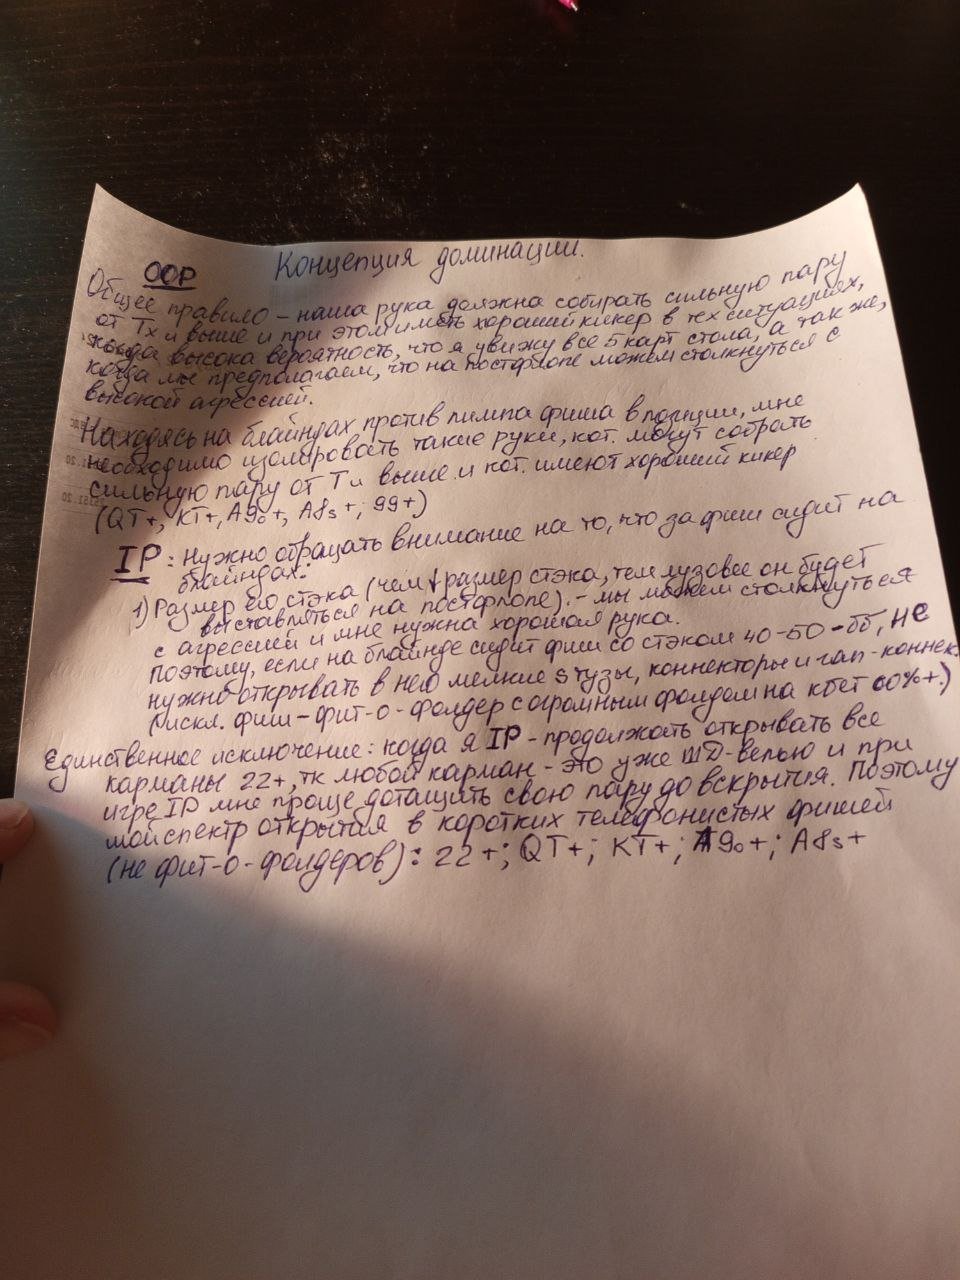 Концепция доминации.
OOP
Общее правило – наша рука должна собирать сильную пару
от Tx и выше и при этом иметь хороший кикер в тех ситуациях,
когда высока вероятность, что я увижу все 5 карт стола, а так же,
когда мы предполагаем, что на постфлопе можем столкнуться с
высокой агрессией.
Находясь на блайндах против лимпа фиша в позиции, мне
необходимо изолировать такие руки, кот. могут собрать
сильную пару от T и выше и кот. имеют хороший кикер
(QT+, KT+, A9o+, A8s+; 99+)
IP: Нужно обращать внимание на то, что за фиш сидит на
блайндах:
1) Размер его стэка (чем ↓ размер стэка, тем лузовее он будет
выставляться на постфлопе). – мы можем столкнуться
с агрессией и мне нужна хорошая рука.
Поэтому, если на блайнде сидит фиш со стэком 40-50-бб, НЕ
нужно открывать в него мелкие s тузы, коннекторы и гап-коннек.
(искл. фиш – фит-о-фолдер с огромным фолдом на кбет 60%+.)
Единственное исключение: когда я IP – продолжать открывать все
карманы 22+, тк любой карман – это уже ШД-велью и при
игре IP мне проще дотащить свою пару до вскрытия. Поэтому
мой спектр открытия в коротких телефонистых фишей
(не фит-о-фолдеров): 22+; QT+; KT+; A9o+; A8s+